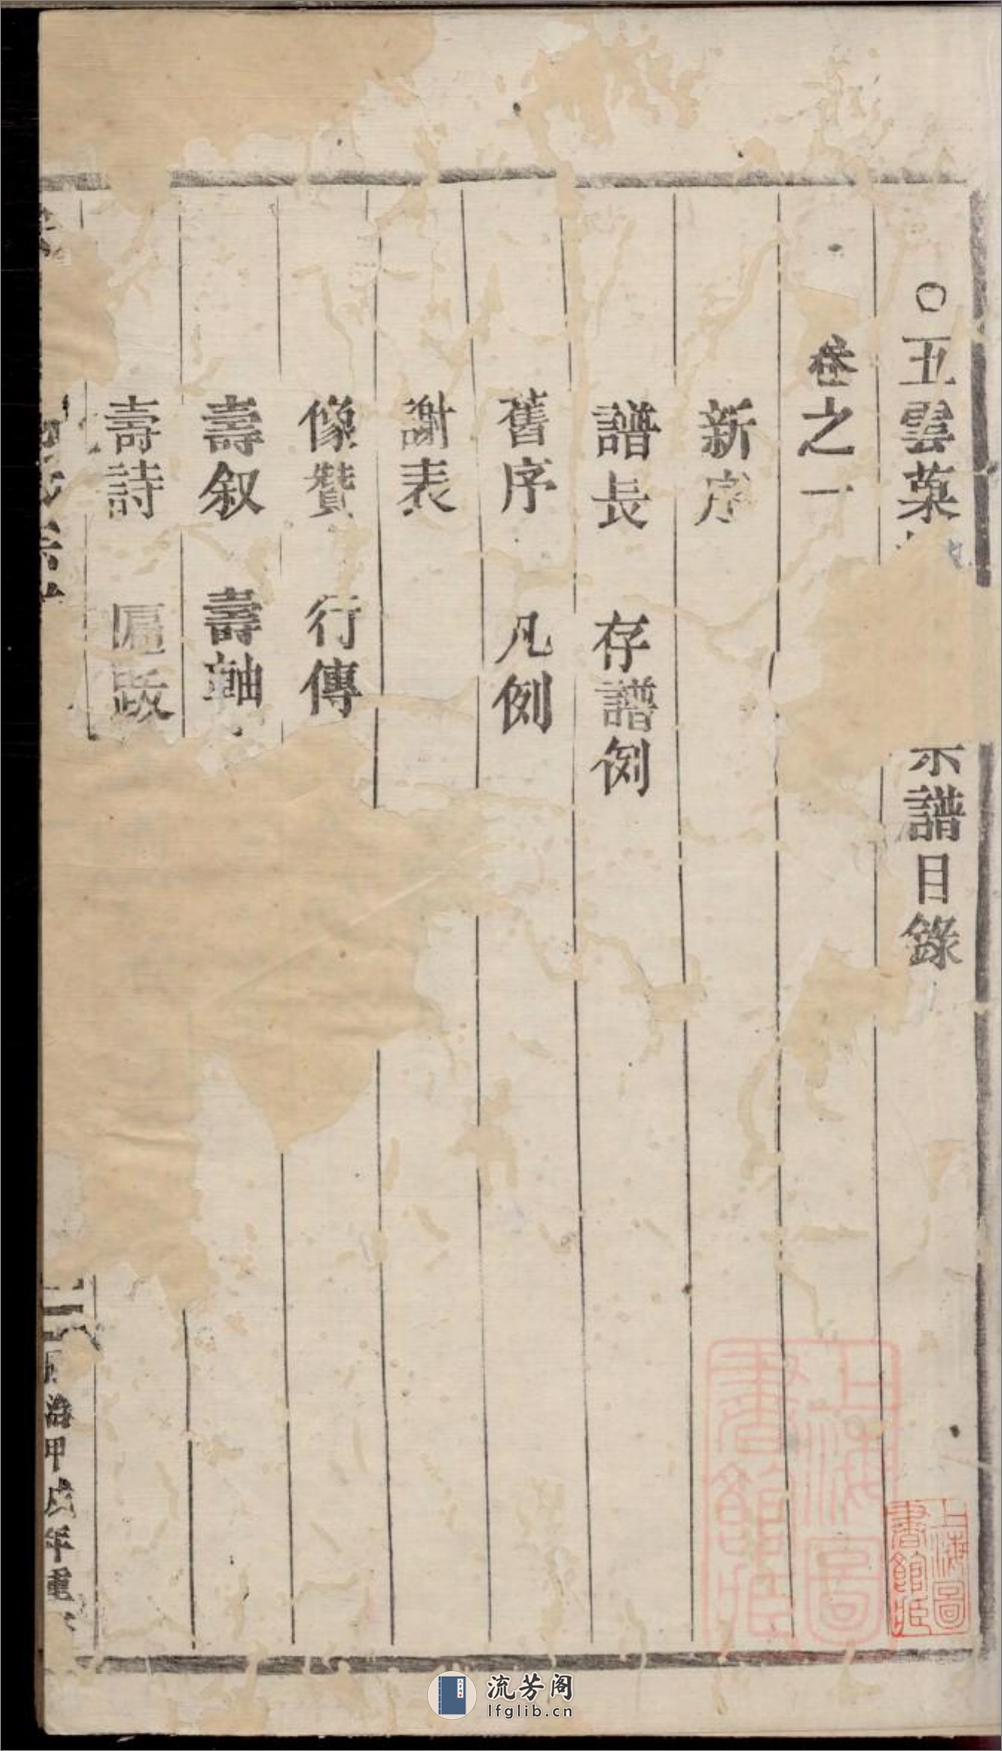 ○五雲葉
宗譜目錄
卷之一
新序
譜長 存譜例
舊序 凡例
謝表
像贊 行傳
壽叙 壽軸
壽詩 匾跋
治甲戌年重
上海圖書館藏
上海圖書館藏
流芳阁
lfglib.cn